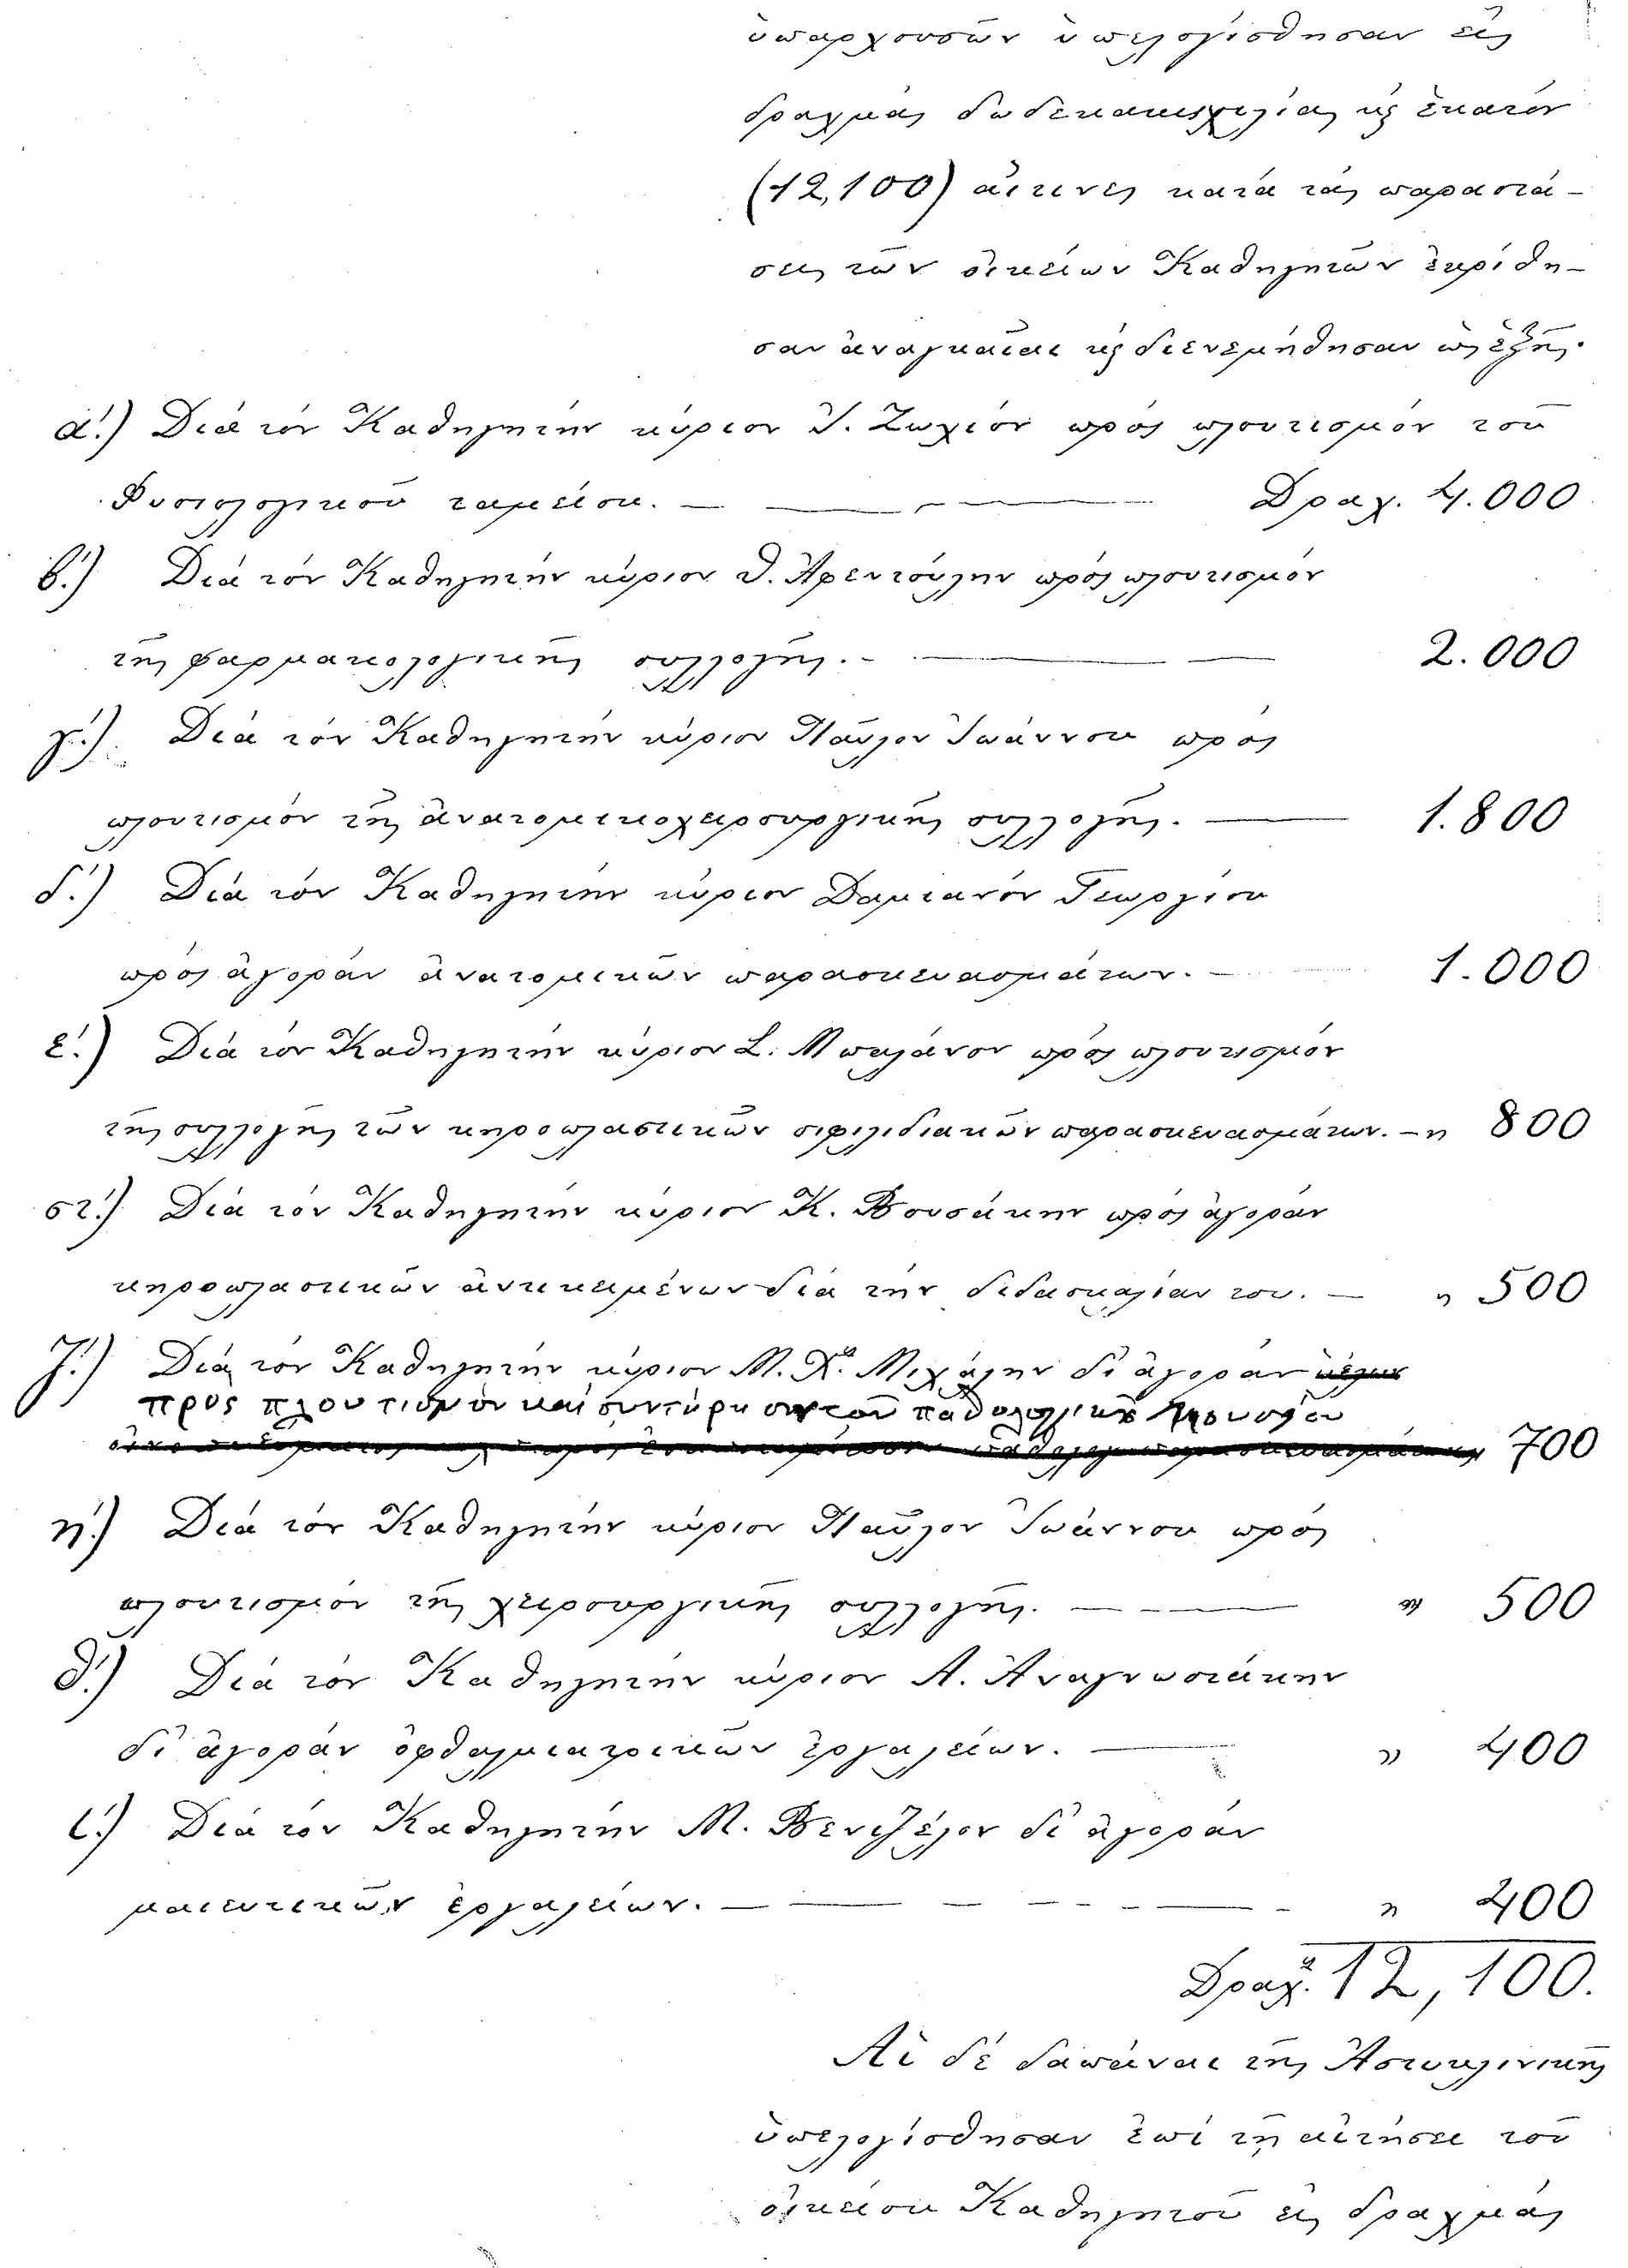 ὑπαρχουσῶν ὑπελογίσθησαν εἰς
δραχμὰς δωδεκακισχιλίας κ̀ ἑκατὸν
(12,100) αἵτινες κατὰ τὰς παραστά-
σεις τῶν οἰκείων Καθηγητῶν ἐκρίθη-
σαν ἀναγκαῖαι κ̀ διενεμήθησαν ὡς ἑξῆς·
α΄.) Διὰ τὸν Καθηγητὴν κύριον Ι. Ζωχιὸν πρὸς πλουτισμὸν τοῦ
Φυσιολογικοῦ ταμείου. — Δραχ. 4.000
β΄.) Διὰ τὸν Καθηγητὴν κύριον Θ. Ἀφεντούλην πρὸς πλουτισμὸν
τῆς φαρμακολογικῆς συλλογῆς. — 2.000
γ΄.) Διὰ τὸν Καθηγητὴν κύριον Παῦλον Ἰωάννου πρὸς
πλουτισμὸν τῆς ἀνατομικοχειρουργικῆς συλλογῆς. — 1.800
δ΄.) Διὰ τὸν Καθηγητὴν κύριον Δαμιανὸν Γεωργίου
πρὸς ἀγορὰν ἀνατομικῶν παρασκευασμάτων. — 1.000
ε΄.) Διὰ τὸν Καθηγητὴν κύριον Σ. Μπαλάνον πρὸς πλουτισμὸν
τῆς συλλογῆς τῶν κηροπλαστικῶν σιφιλιδιακῶν παρασκευασμάτων. — " 800
στ΄.) Διὰ τὸν Καθηγητὴν κύριον Κ. Βουσάκην πρὸς ἀγορὰν
κηροπλαστικῶν ἀντικειμένων διὰ τὴν διδασκαλίαν του. — " 500
ζ΄.) Διὰ τὸν Καθηγητὴν κύριον Μ. Χ. Μιχάλην δι' ἀγορὰν
προς πλουτισμὸν καὶ συντήρησιν τοῦ παθολογικοῦ Μουσείου
700
η΄.) Διὰ τὸν Καθηγητὴν κύριον Παῦλον Ἰωάννου πρὸς
πλουτισμὸν τῆς χειρουργικῆς συλλογῆς. — " 500
θ΄.) Διὰ τὸν Καθηγητὴν κύριον Α. Ἀναγνωστάκην
δι' ἀγορὰν ὀφθαλμιατρικῶν ἐργαλείων. — " 400
ι΄.) Διὰ τὸν Καθηγητὴν Μ. Βενιζέλον δι' ἀγορὰν
μαιευτικῶν ἐργαλείων. — " 400
Δραχ. 12,100.
Αἱ δὲ δαπάναι τῆς Ἀστυκλινικῆς
ὑπελογίσθησαν ἐπὶ τῇ αἰτήσει τοῦ
οἰκείου Καθηγητοῦ εἰς δραχμὰς